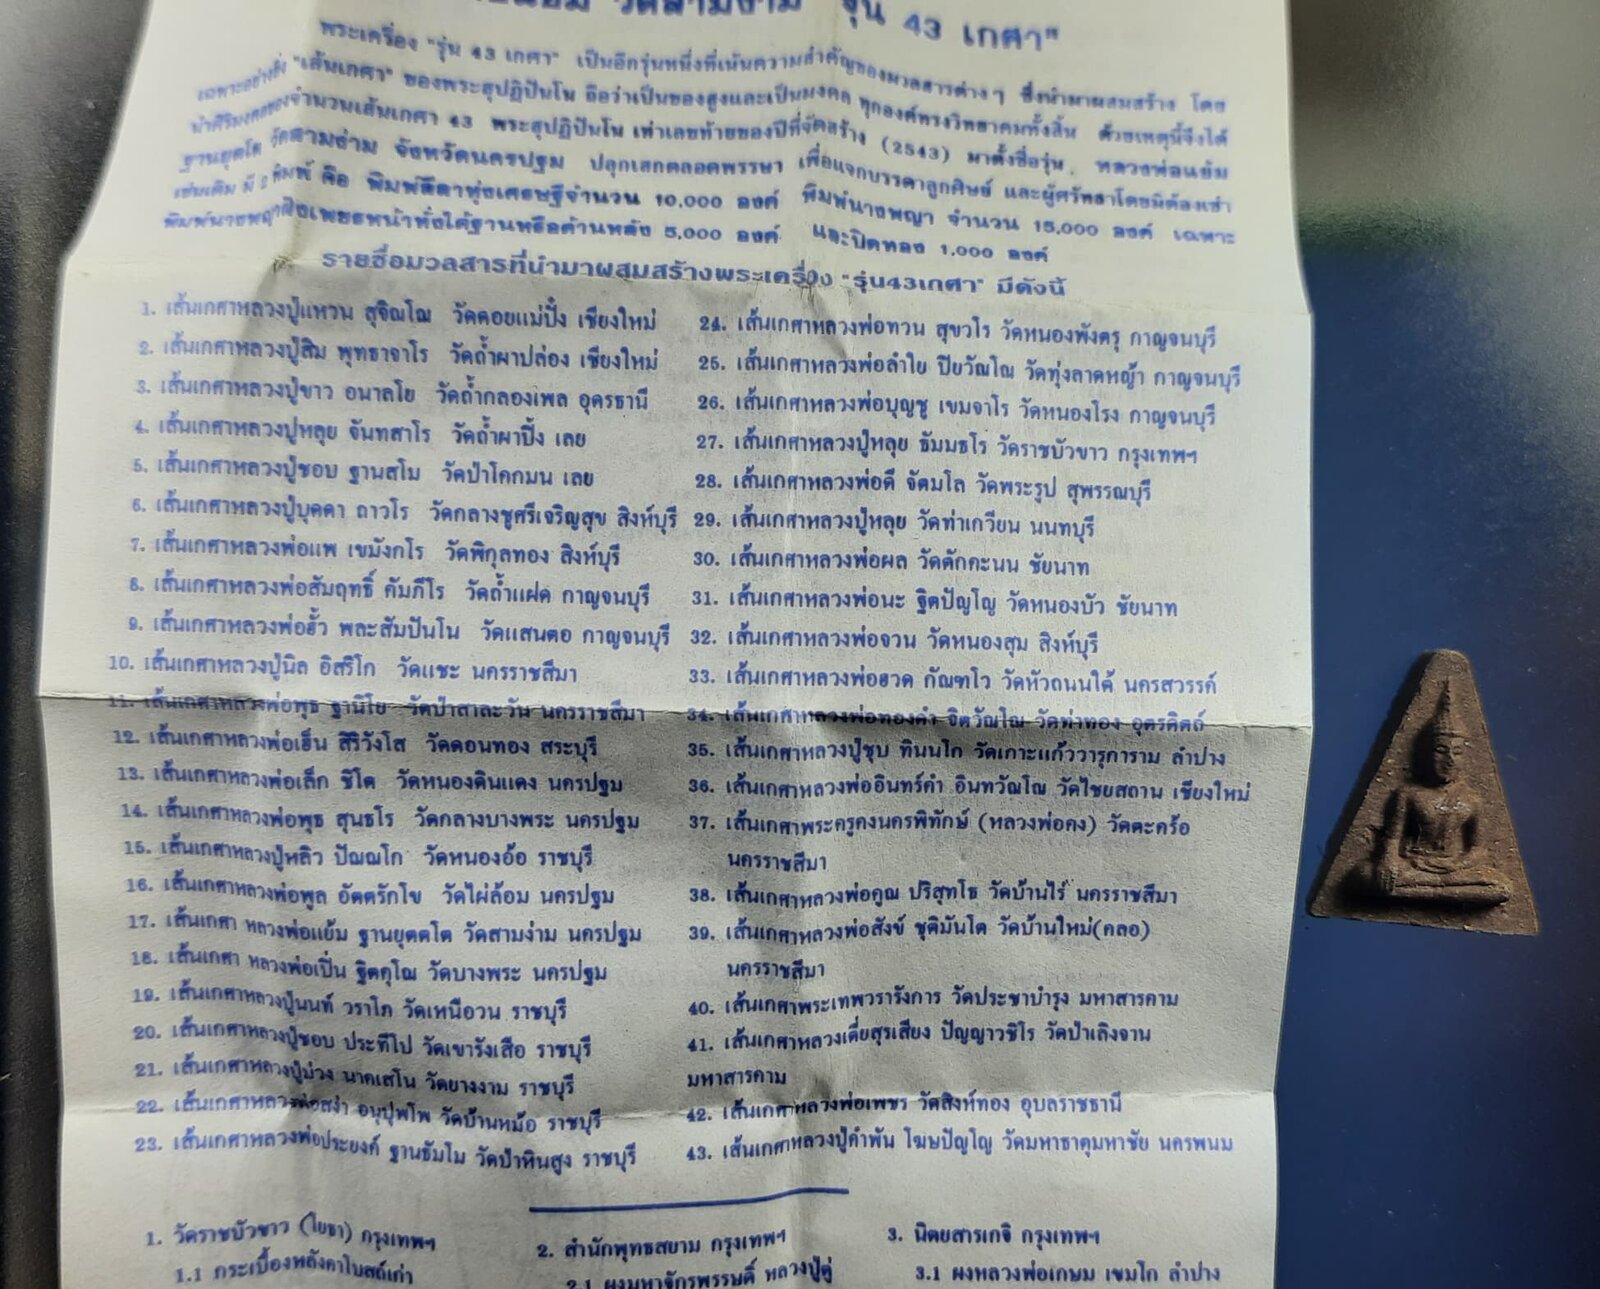 วัดสามง่าม "รุ่น 43 เกศา"
พระเครื่อง "รุ่น 43 เกศา" เป็นอีกรุ่นหนึ่งที่เน้นความสำคัญของมวลสารต่างๆ ซึ่งนำมาผสมสร้าง โดย
เฉพาะอย่างยิ่ง "เส้นเกศา" ของพระสุปฏิปันโน ถือว่าเป็นของสูงและเป็นมงคล ทุกองค์ทรงวิทยาคมทั้งสิ้น ด้วยเหตุนี้จึงได้
นำศิริมงคลของจำนวนเส้นเกศา 43 พระสุปฏิปันโน เท่าเลขท้ายของปีที่จัดสร้าง (2543) มาตั้งชื่อรุ่น หลวงพ่อแย้ม
ฐานยุตโต วัดสามง่าม จังหวัดนครปฐม ปลุกเสกตลอดพรรษา เพื่อแจกบรรดาลูกศิษย์ และผู้ศรัทธาโดยมิต้องเช่า
เช่นเดิม มี 2 พิมพ์ คือ พิมพ์ลีลาทุ่งเศรษฐีจำนวน 10,000 องค์ พิมพ์นางพญา จำนวน 15,000 องค์ เฉพาะ
พิมพ์นางพญาฝังเพชรหน้าทั่งใต้ฐานหรือด้านหลัง 5,000 องค์ และปิดทอง 1,000 องค์
รายชื่อมวลสารที่นำมาผสมสร้างพระเครื่อง "รุ่น43เกศา" มีดังนี้
1. เส้นเกศาหลวงปู่แหวน สุจิณโณ วัดดอยแม่ปั๋ง เชียงใหม่
2. เส้นเกศาหลวงปู่สิม พุทธาจาโร วัดถ้ำผาปล่อง เชียงใหม่
3. เส้นเกศาหลวงปู่ขาว อนาลโย วัดถ้ำกลองเพล อุดรธานี
4. เส้นเกศาหลวงปู่หลุย จันทสาโร วัดถ้ำผาบิ้ง เลย
5. เส้นเกศาหลวงปู่ชอบ ฐานสโม วัดป่าโคกมน เลย
6. เส้นเกศาหลวงปู่บุดดา ถาวโร วัดกลางชูศรีเจริญสุข สิงห์บุรี
7. เส้นเกศาหลวงพ่อแพ เขมังกโร วัดพิกุลทอง สิงห์บุรี
8. เส้นเกศาหลวงพ่อสัมฤทธิ์ คัมภีโร วัดถ้ำแฝด กาญจนบุรี
9. เส้นเกศาหลวงพ่อฮั้ว พละสัมปันโน วัดแสนตอ กาญจนบุรี
10. เส้นเกศาหลวงปู่นิล อิสริโก วัดแชะ นครราชสีมา
11. เส้นเกศาหลวงพ่อพุธ ฐานิโย วัดป่าสาละวัน นครราชสีมา
12. เส้นเกศาหลวงพ่อเฮ็น สิริวังโส วัดดอนทอง สระบุรี
13. เส้นเกศาหลวงพ่อเล็ก ชิโต วัดหนองดินแดง นครปฐม
14. เส้นเกศาหลวงพ่อพุธ สุนธโร วัดกลางบางพระ นครปฐม
15. เส้นเกศาหลวงปู่หลิว ปัณณโก วัดหนองอ้อ ราชบุรี
16. เส้นเกศาหลวงพ่อพูล อัตตรักโข วัดไผ่ล้อม นครปฐม
17. เส้นเกศา หลวงพ่อแย้ม ฐานยุตตโต วัดสามง่าม นครปฐม
18. เส้นเกศา หลวงพ่อเปิ่น ฐิตคุโณ วัดบางพระ นครปฐม
19. เส้นเกศาหลวงปู่นนท์ วราโภ วัดเหนือวน ราชบุรี
20. เส้นเกศาหลวงปู่ชอบ ประทีโป วัดเขารังเสือ ราชบุรี
21. เส้นเกศาหลวงปู่ม่วง นาคเสโน วัดยางงาม ราชบุรี
22. เส้นเกศาหลวงพ่อสง่า อนุปุพโพ วัดบ้านหม้อ ราชบุรี
23. เส้นเกศาหลวงพ่อประยงค์ ฐานธัมโม วัดป่าหินสูง ราชบุรี
24. เส้นเกศาหลวงพ่อทวน สุขวโร วัดหนองพังตรุ กาญจนบุรี
25. เส้นเกศาหลวงพ่อลำใย ปิยวัณโณ วัดทุ่งลาดหญ้า กาญจนบุรี
26. เส้นเกศาหลวงพ่อบุญชู เขมจาโร วัดหนองโรง กาญจนบุรี
27. เส้นเกศาหลวงปู่หลุย ธัมมธโร วัดราชบัวขาว กรุงเทพฯ
28. เส้นเกศาหลวงพ่อดี จัตมโล วัดพระรูป สุพรรณบุรี
29. เส้นเกศาหลวงปู่หลุย วัดท่าเกวียน นนทบุรี
30. เส้นเกศาหลวงพ่อผล วัดดักคะนน ชัยนาท
31. เส้นเกศาหลวงพ่อนะ ฐิตปัญโญ วัดหนองบัว ชัยนาท
32. เส้นเกศาหลวงพ่อจวน วัดหนองสุม สิงห์บุรี
33. เส้นเกศาหลวงพ่อฮวด กัณฑโว วัดหัวถนนใต้ นครสวรรค์
34. เส้นเกศาหลวงพ่อทองดำ จิตวัณโณ วัดท่าทอง อุตรดิตถ์
35. เส้นเกศาหลวงปู่ชุบ ทินนโก วัดเกาะแก้ววารุการาม ลำปาง
36. เส้นเกศาหลวงพ่ออินทร์คำ อินทวัณโณ วัดไชยสถาน เชียงใหม่
37. เส้นเกศาพระครูคงนครพิทักษ์ (หลวงพ่อคง) วัดตะคร้อ
นครราชสีมา
38. เส้นเกศาหลวงพ่อคูณ ปริสุทโธ วัดบ้านไร่ นครราชสีมา
39. เส้นเกศาหลวงพ่อสังข์ ชุติมันโต วัดบ้านใหม่(คลอ)
นครราชสีมา
40. เส้นเกศาพระเทพวรารังการ วัดประชาบำรุง มหาสารคาม
41. เส้นเกศาหลวงเตี่ยสุรเสียง ปัญญาวชิโร วัดป่าเลิงจาน
มหาสารคาม
42. เส้นเกศาหลวงพ่อเพชร วัดสิงห์ทอง อุบลราชธานี
43. เส้นเกศาหลวงปู่คำพัน โฆษปัญโญ วัดมหาธาตุมหาชัย นครพนม
1. วัดราชบัวขาว (โยธา) กรุงเทพฯ
1.1 กระเบื้องหลังคาโบสถ์เก่า
2. สำนักพุทธสยาม กรุงเทพฯ
2.1 ผงมหาจักรพรรษดิ์ หลวงปู่ดู่
3. นิตยสารเกจิ กรุงเทพฯ
3.1 ผงหลวงพ่อเกษม เขมโก ลำปาง